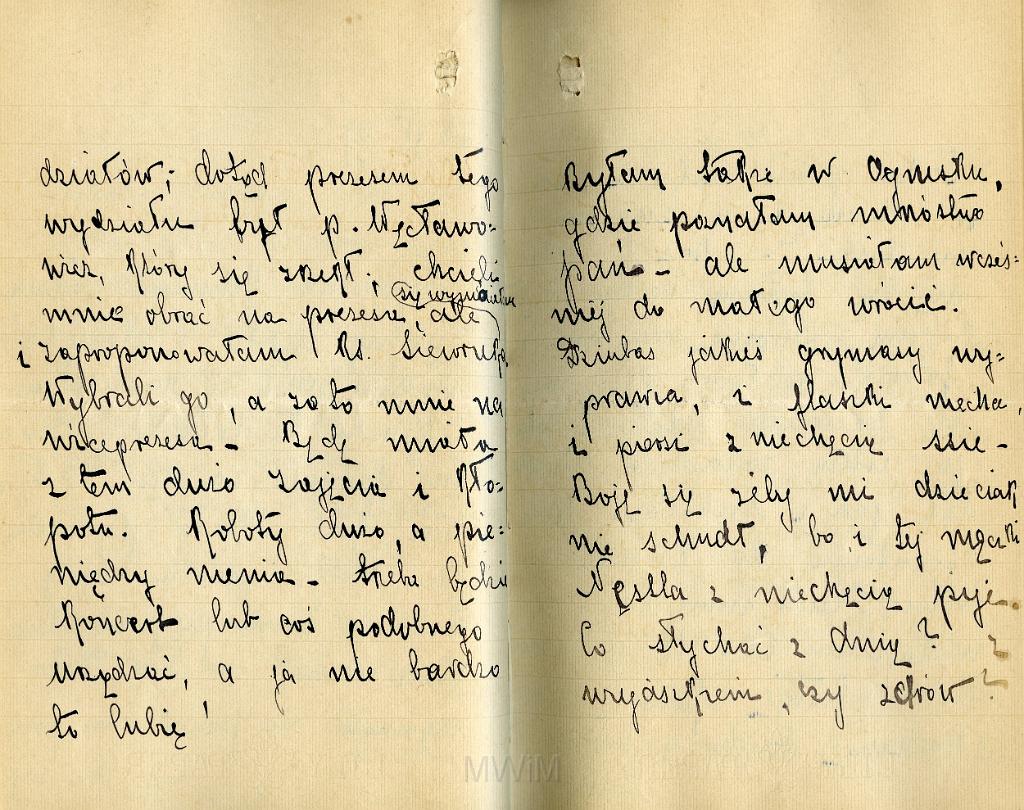 działów; dotąd prezesem tego
wydziału był p. Węcławo-
wicz, który się zrzekł; chcieli
mnie obrać na prezesa, ale
się wymówiłam
i zaproponowałam ks.
Wybrali go, a za to mnie na
wiceprezesa – Będę miała
z tem dużo zajęcia i kło-
potu. Roboty dużo, a pie-
niędzy niema – trzeba będzie
koncert lub coś podobnego
urządzać, a ja nie bardzo
to lubię!
Byłam także w Ognisku,
gdzie poznałam mnóstwo
pań – ale musiałam wcześ-
niej do małego wrócić.
Dziubas jakieś grymasy wy-
prawia, z flaszki niechce,
i piersi z niechęcią ssie –
Boję się żeby mi dzieciak
nie schudł, bo i tej mączki
Nestla z niechęcią pije.
Co słychać z Unią? z
wujaszkiem, czy zdrów?
MWiM